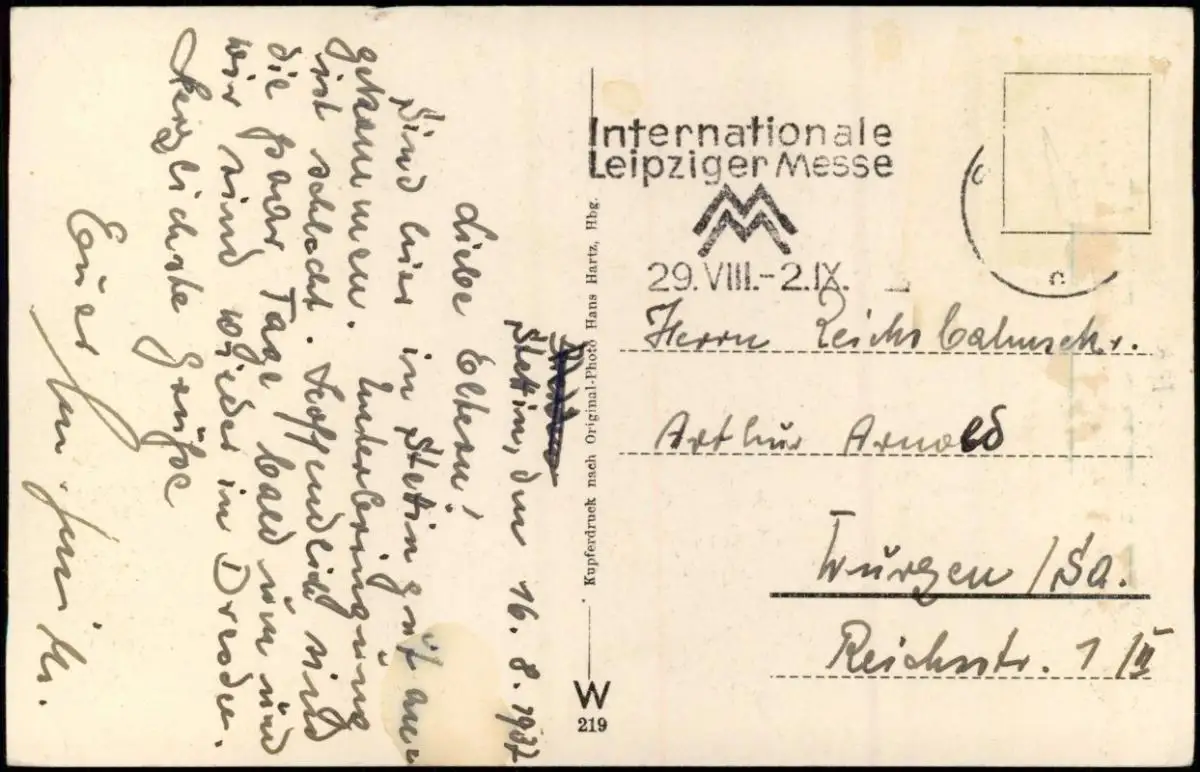 Stettin, den 16.8.1937
Liebe Eltern!
Sind hier in Stettin gut an-
gekommen. Unterbringung
ist schlecht. Hoffendlich sind
die paar Tage bald um und
wir sind wieder in Dresden.
Herzlichste Grüße
Euer
Kupferdruck nach Original-Photo Hans Hartz, Hbg.
W
219
Internationale
Leipziger Messe
MM
29.VIII.-2.IX.
Herrn Reichsbahnsekr.
Arthur Arnold
Wurzen/Sa.
Reichsstr. 1/II